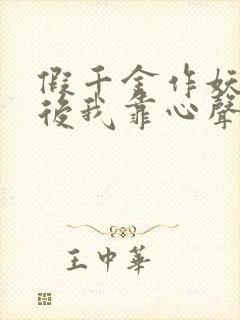 假千金作妖
後我靠心聲
王中華